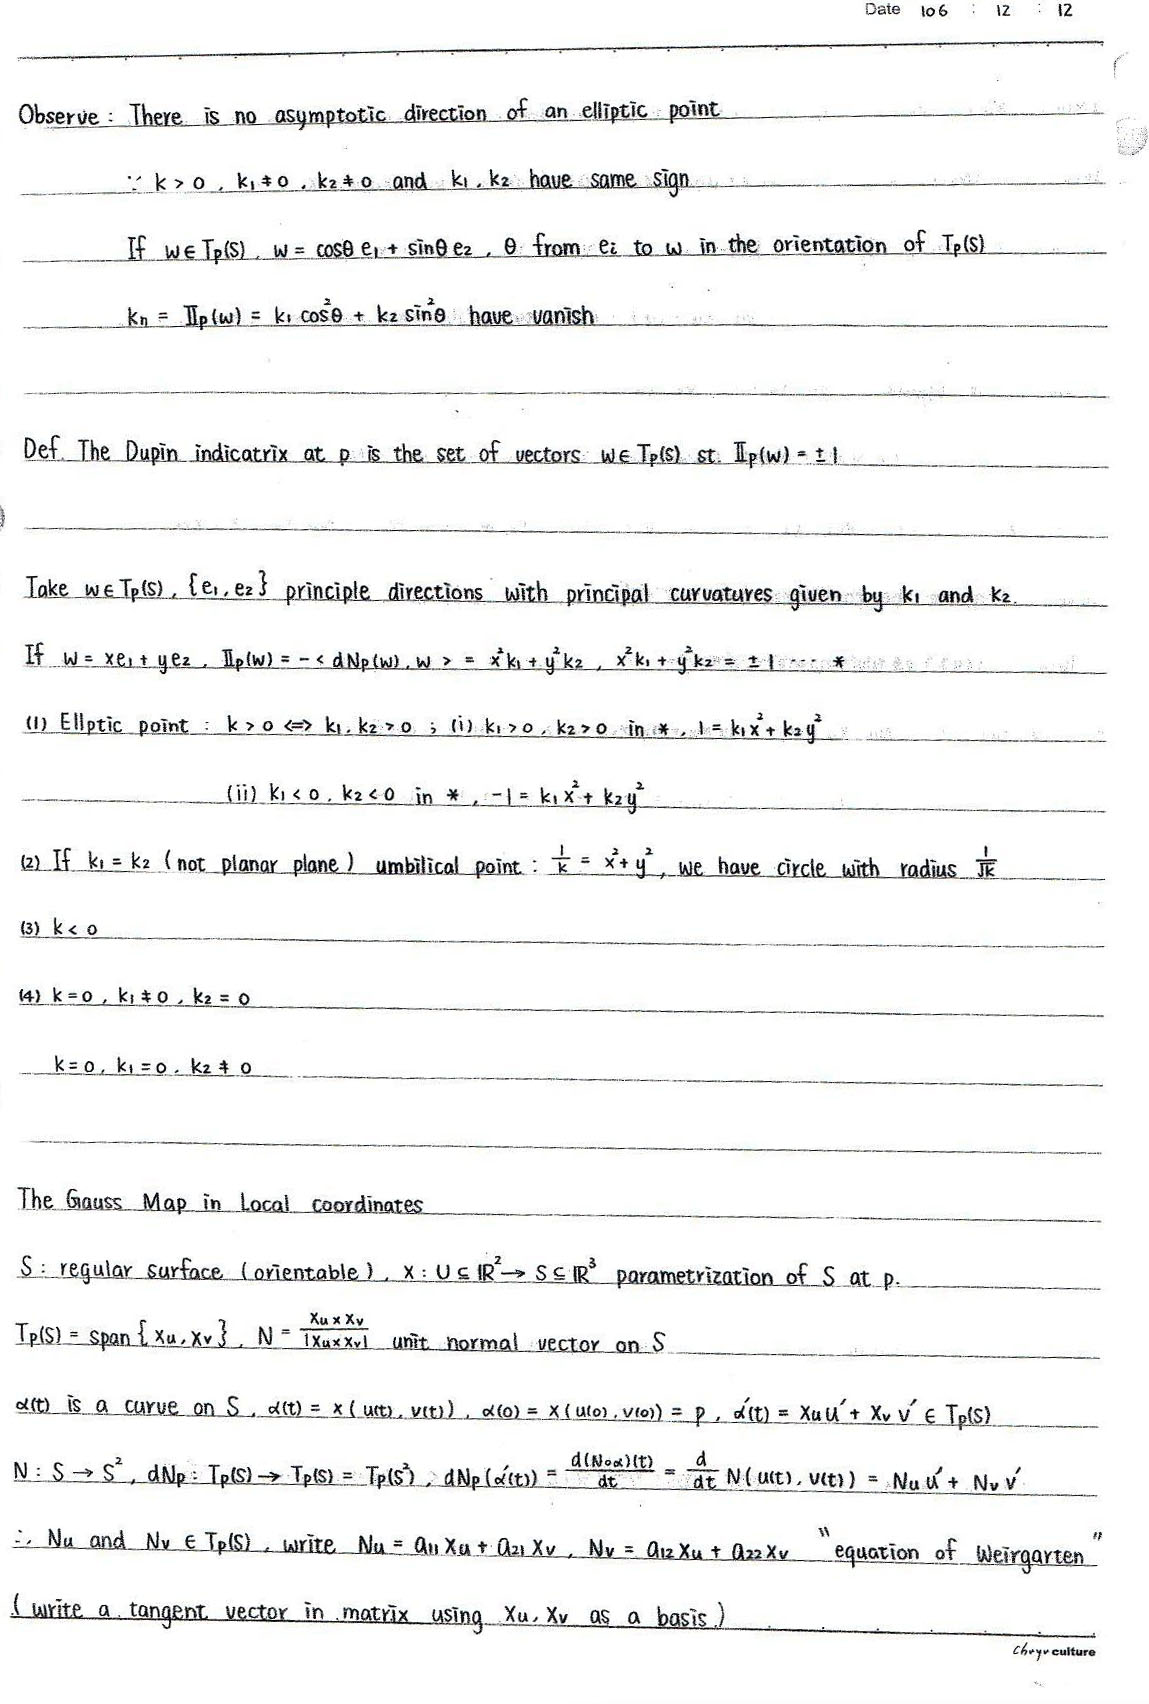 Date 106 : 12 : 12
Observe : There is no asymptotic direction of an elliptic point
∵ k > 0 , k₁ ≠ 0 , k₂ ≠ 0 and k₁ , k₂ have same sign
If w ∈ Tp(S) , w = cosθ e₁ + sinθ e₂ , θ from e₁ to w in the orientation of Tp(S)
kn = IIp(w) = k₁ cos²θ + k₂ sin²θ have vanish
Def. The Dupin indicatrix at p is the set of vectors w ∈ Tp(S) st. IIp(w) = ± 1
Take w ∈ Tp(S) , {e₁, e₂} principle directions with principal curvatures given by k₁ and k₂.
If w = xe₁ + ye₂ , IIp(w) = - < dNp(w) , w > = x²k₁ + y²k₂ , x²k₁ + y²k₂ = ± 1 *
(1) Ellptic point : k > 0 <=> k₁ . k₂ > 0 ; (i) k₁ > 0 , k₂ > 0 in * , 1 = k₁x² + k₂y²
(ii) k₁ < 0 , k₂ < 0 in * , -1 = k₁x² + k₂y²
(2) If k₁ = k₂ ( not planar plane ) umbilical point : 1/k = x² + y² , we have circle with radius 1/√k
(3) k < 0
(4) k = 0 , k₁ ≠ 0 , k₂ = 0
k = 0 , k₁ = 0 , k₂ ≠ 0
The Gauss Map in Local coordinates
S : regular surface (orientable) , X : U ⊆ ℝ² → S ⊆ ℝ³ parametrization of S at p.
Tp(S) = span { Xu , Xv } , N = Xu × Xv / |Xu × Xv| unit normal vector on S
α(t) is a curve on S , α(t) = X ( u(t) , v(t) ) , α(0) = X ( u(0) , v(0) ) = p , α′(t) = Xu u′ + Xv v′ ∈ Tp(S)
N : S → S² , dNp : Tp(S) → Tp(S) = Tp(S²) , dNp (α′(t)) = d(N∘α)(t)/dt = d/dt N( u(t) , v(t) ) = Nu u′ + Nv v′
∴ Nu and Nv ∈ Tp(S) , write Nu = a₁₁ Xu + a₂₁ Xv , Nv = a₁₂ Xu + a₂₂ Xv "equation of Weirgarten"
( write a tangent vector in matrix using Xu , Xv as a basis )
culture